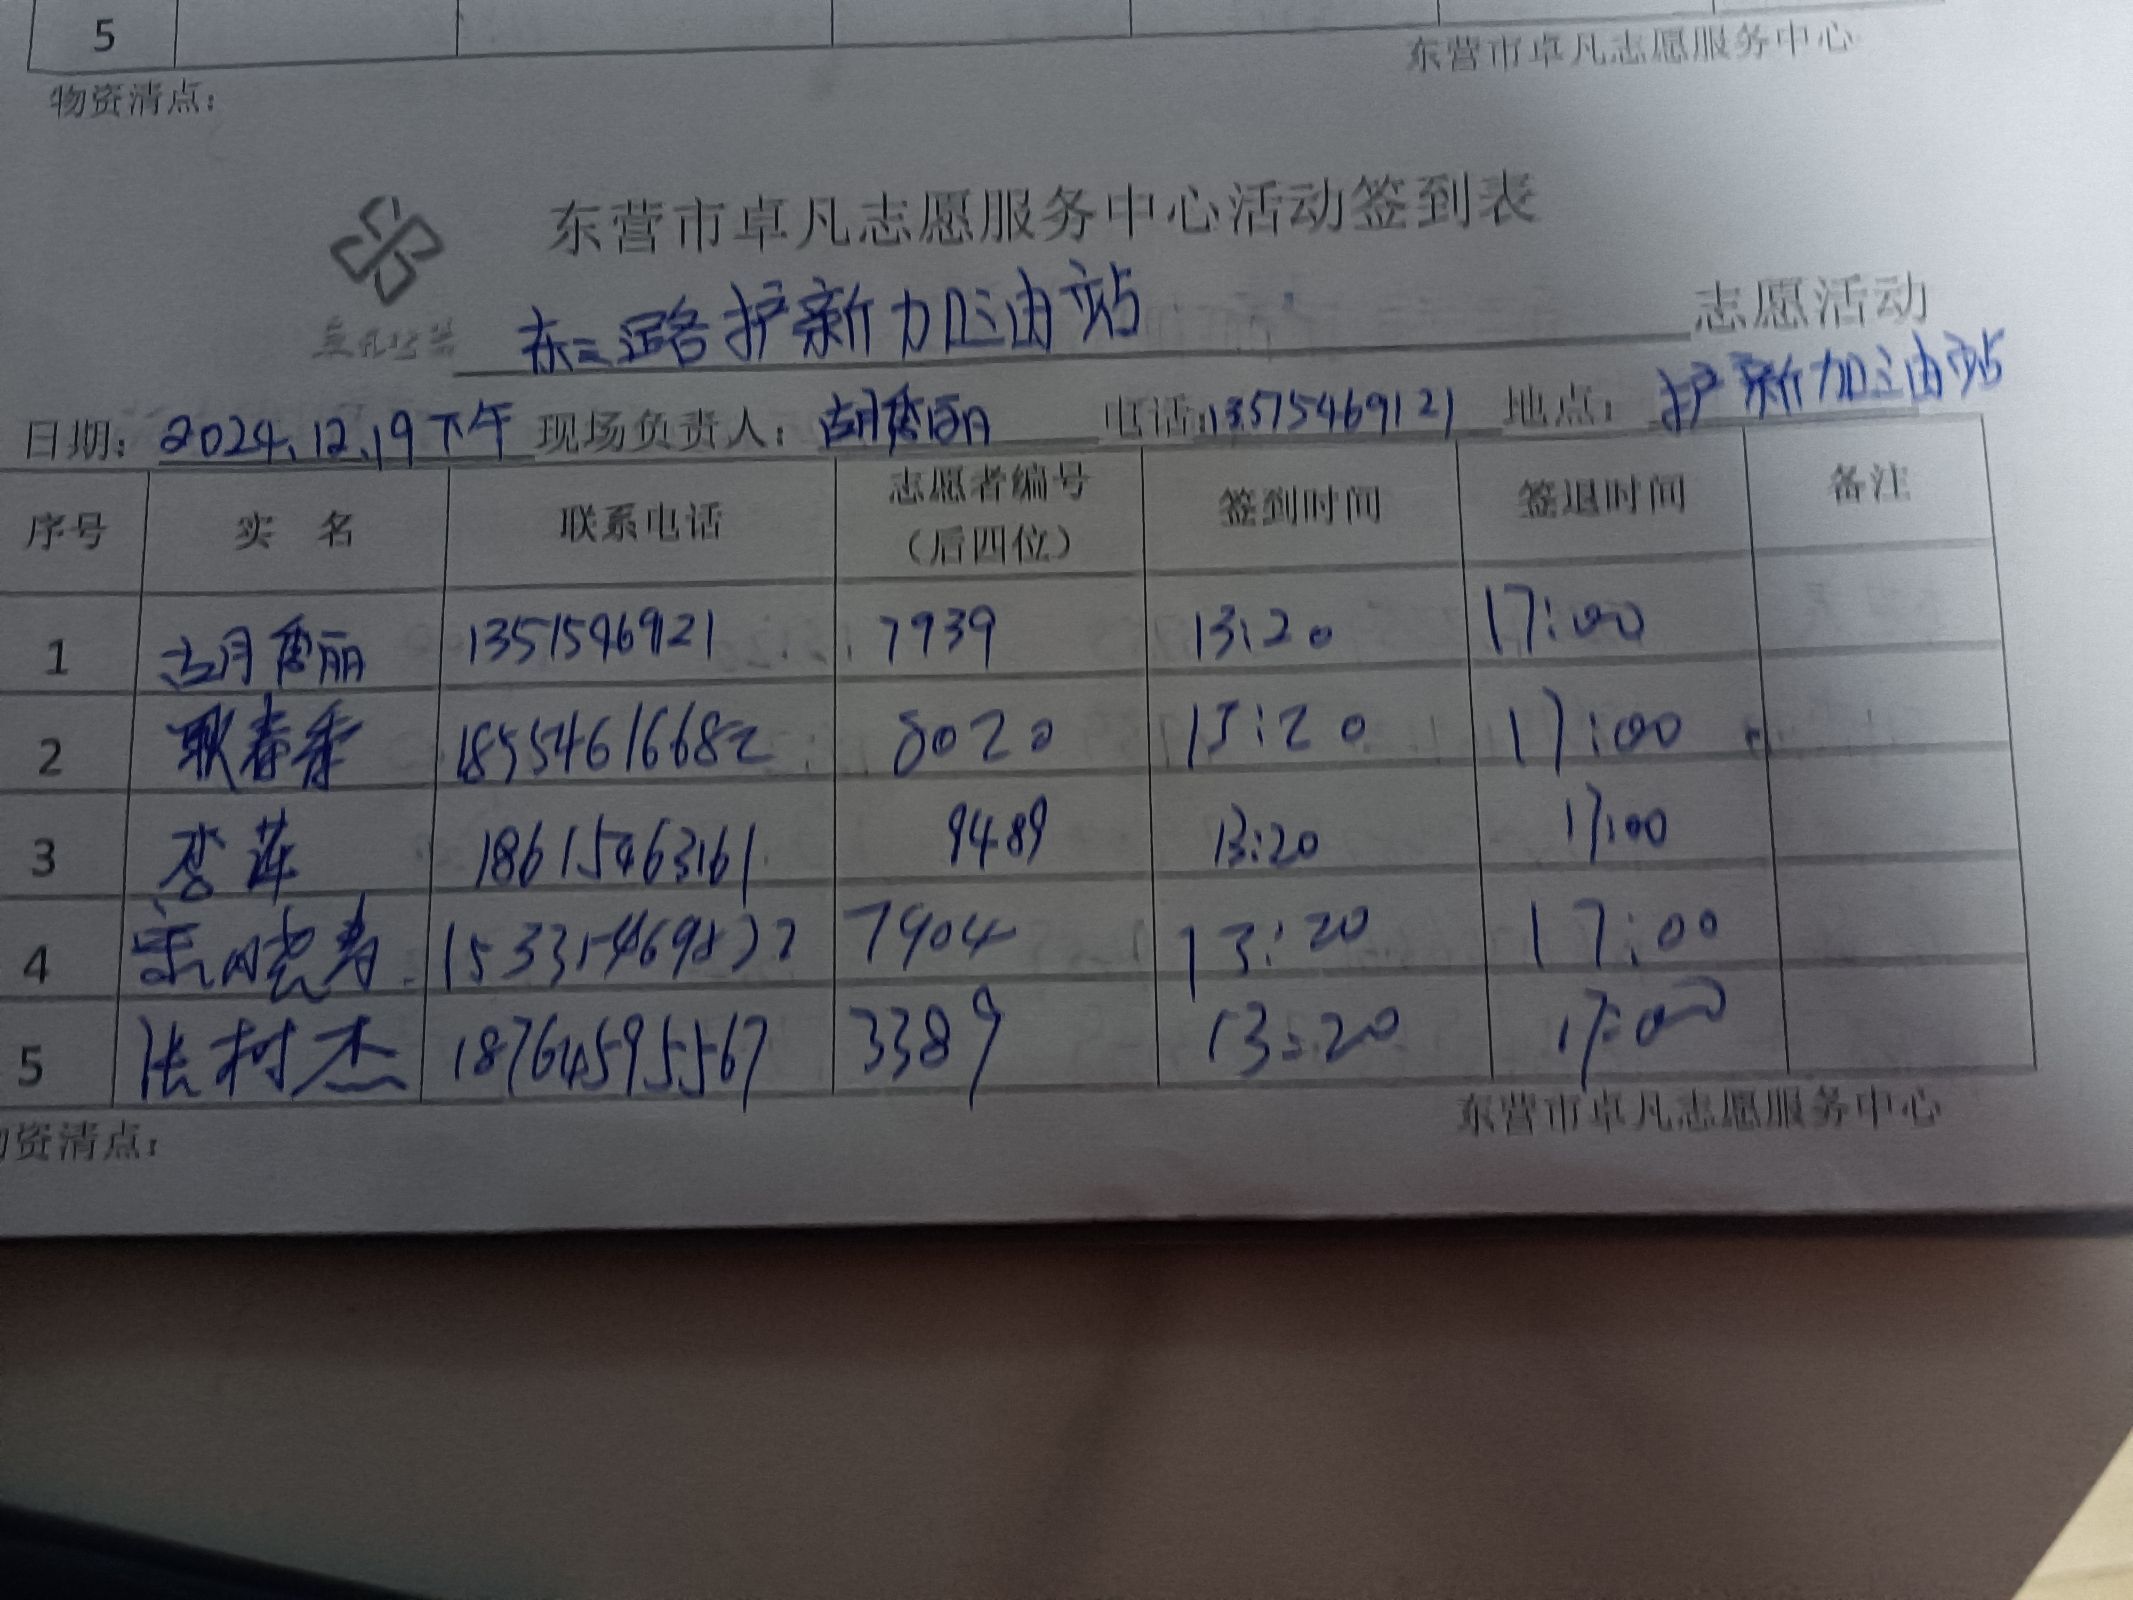 5
东营市卓凡志愿服务中心
物资清点：
东营市卓凡志愿服务中心活动签到表
卓凡公益
东三路护新加油站 志愿活动
日期：2024.12.19下午 现场负责人：胡秀丽 电话：13515469121 地点：护新加油站
序号 实 名 联系电话 志愿者编号（后四位） 签到时间 签退时间 备注
1 胡秀丽 13515469121 7939 13:20 17:00
2 耿春香 18554616682 8020 13:20 17:00
3 李莲 18615463161 9489 13:20 17:00
4 7904 13:20 17:00
5 张树杰 18764595567 3389 13:20 17:00
东营市卓凡志愿服务中心
物资清点：